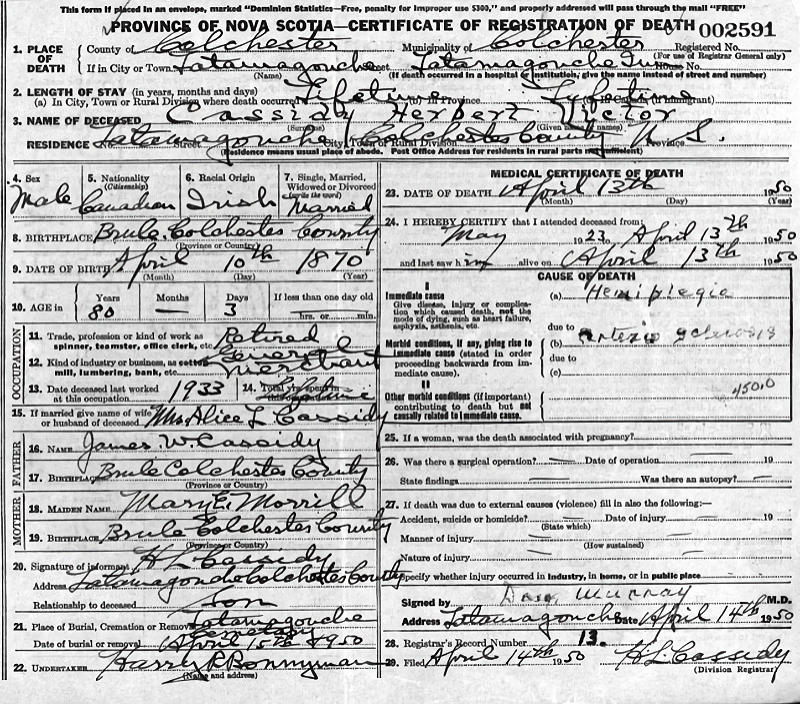 This form if posted in an envelope, marked "Dominion Statistics—Free, penalty for improper use $300," and properly addressed will pass through the mail "FREE"
PROVINCE OF NOVA SCOTIA—CERTIFICATE OF REGISTRATION OF DEATH 002591
1. PLACE OF DEATH County of Colchester Municipality of Colchester Registered No.
(For use of Registrar General only)
If in City or Town Tatamagouche Street Tatamagouche House No.
(Name) (If death occurred in a hospital or institution, give the name instead of street and number)
2. LENGTH OF STAY (in years, months and days)
(a) In City, Town or Rural Division where death occurred Lifetime (b) In Province Lifetime (c) In Canada (if immigrant)
3. NAME OF DECEASED Cassidy Herbert Victor
(Surname) (Given name or names)
RESIDENCE Tatamagouche Colchester County N.S.
City, Town or Rural Division Province
(Residence means usual place of abode. Post Office Address for residents in rural parts not sufficient)
4. Sex Male
5. Nationality (Citizenship) Canadian
6. Racial Origin Irish
7. Single, Married, Widowed or Divorced (write the word) Married
8. BIRTHPLACE Brule Colchester County
(Province or Country)
9. DATE OF BIRTH April 10th 1870
(Month) (Day) (Year)
10. AGE in Years 80 Months — Days 3 If less than one day old
hrs. or min.
OCCUPATION
11. Trade, profession or kind of work as spinner, teamster, office clerk, etc. Retired
12. Kind of industry or business, as cotton mill, lumbering, bank, etc. General Merchant
13. Date deceased last worked at this occupation 1933 14. Total yrs. spent in
15. If married give name of wife or husband of deceased Mrs. Alice L Cassidy
FATHER
16. NAME James W. Cassidy
17. BIRTHPLACE Brule Colchester County
(Province or Country)
MOTHER
18. MAIDEN NAME Mary E. Morrill
19. BIRTHPLACE Brule Colchester County
(Province or Country)
20. Signature of informant H L Cassidy
Address Tatamagouche Colchester County
Relationship to deceased Son
21. Place of Burial, Cremation or Removal Tatamagouche Cemetery
Date of burial or removal April 15th 1950
22. UNDERTAKER Harry R Bonnyman
(Name and address)
MEDICAL CERTIFICATE OF DEATH
23. DATE OF DEATH April 13th 1950
(Month) (Day) (Year)
24. I HEREBY CERTIFY that I attended deceased from
May 1923 to April 13th 1950
and last saw him alive on April 13th 1950
CAUSE OF DEATH
I
Immediate cause (a) Hemiplegia
Give disease, injury or complication which caused death, not the mode of dying, such as heart failure, asphyxia, asthenia, etc.
due to
Morbid conditions, if any, giving rise to immediate cause (stated in order proceeding backwards from immediate cause). (b) arterio sclerosis
due to
(c)
II
Other morbid conditions (if important) contributing to death but not causally related to immediate cause.
450.0
25. If a woman, was the death associated with pregnancy?
26. Was there a surgical operation? — Date of operation — 19
State findings — Was there an autopsy? —
27. If death was due to external causes (violence) fill in also the following:—
Accident, suicide or homicide? — Date of injury — 19
(State which)
Manner of injury —
(How sustained)
Nature of injury —
Specify whether injury occurred in industry, in home, or in public place
Signed by Dan Murray M.D.
Address Tatamagouche Date April 14th 1950
28. Registrar's Record Number 13.
29. Filed April 14th 1950 H L Cassidy
(Division Registrar)